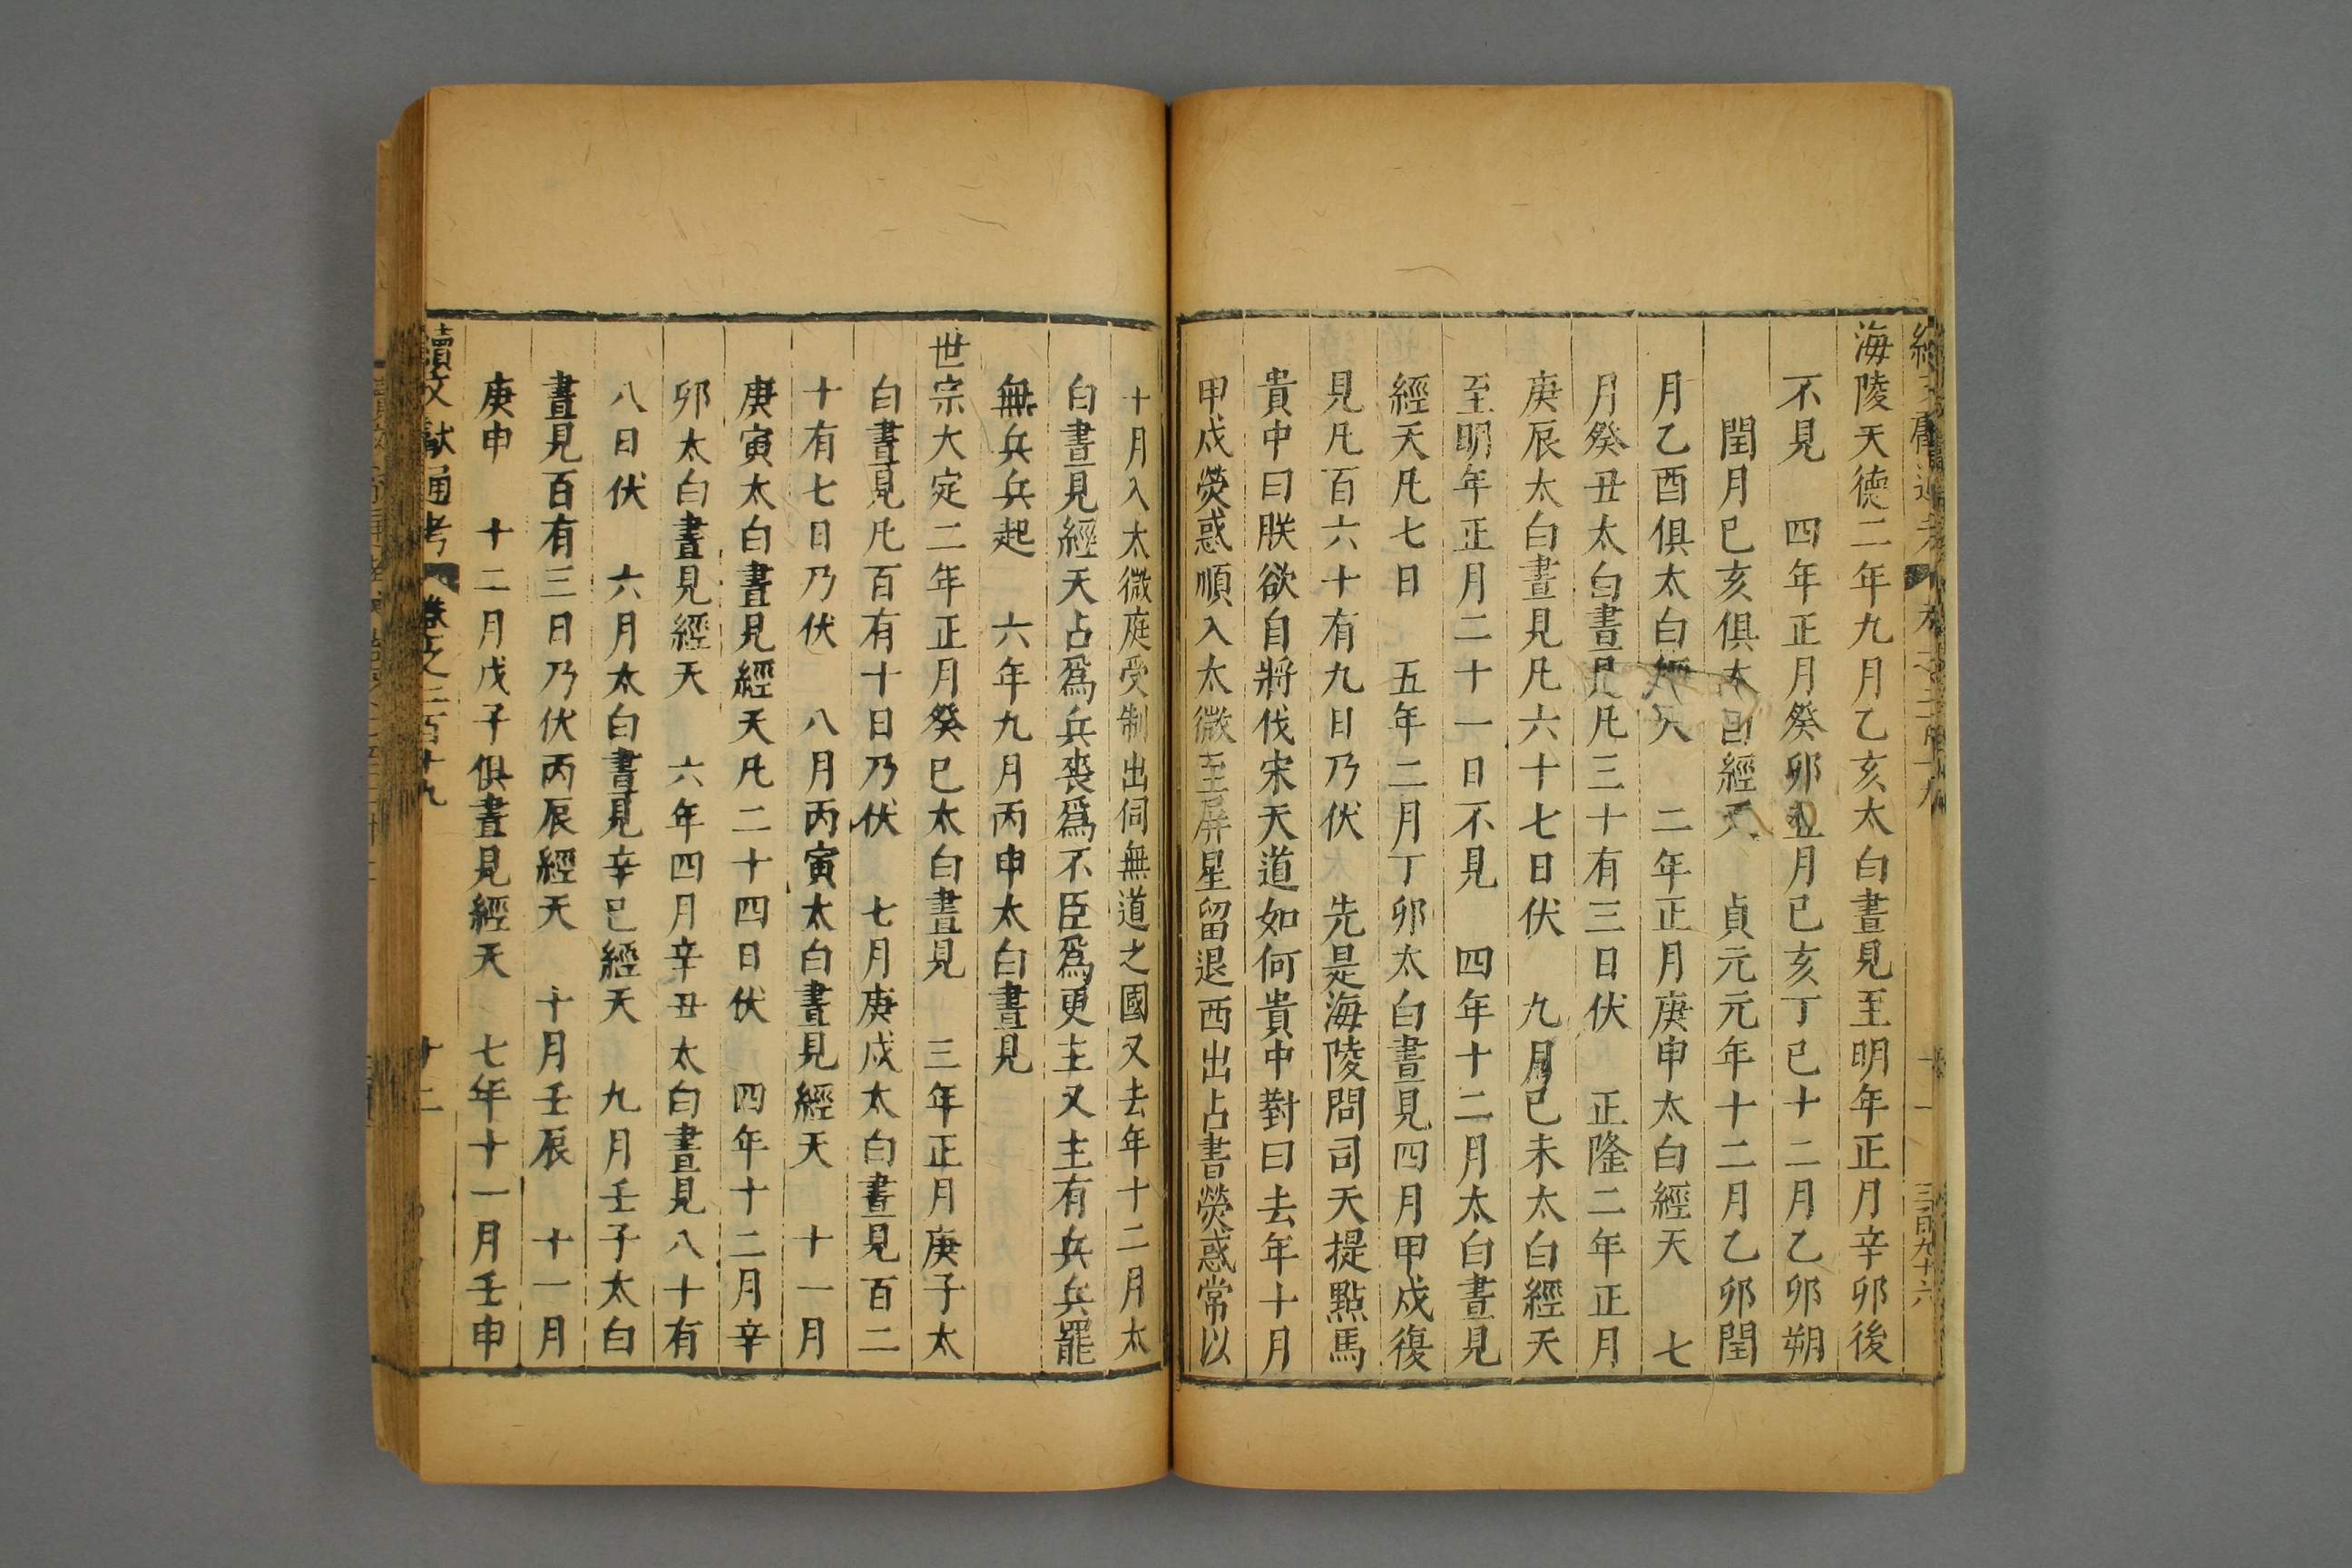 海陵天德二年九月乙亥太白晝見至明年正月辛卯後
不見　四年正月癸卯　月己亥丁巳十二月乙卯朔
閏月己亥俱太白經天　貞元元年十二月乙卯閏
月乙酉俱太白經天　二年正月庚申太白經天　七
月癸丑太白晝見凡三十有三日伏　正隆二年正月
庚辰太白晝見凡六十七日伏　九月己未太白經天
至明年正月二十一日不見　四年十二月太白晝見
經天凡七日　五年二月丁卯太白晝見四月甲戌復
見凡百六十有九日乃伏　先是海陵問司天提點馬
貴中曰朕欲自將伐宋天道如何貴中對曰去年十月
甲戌熒惑順入太微至屏星留退西出占書熒惑常以
十月入太微庭受制出伺無道之國又去年十二月太
白晝見經天占爲兵喪爲不臣爲更主又主有兵兵罷
無兵兵起　六年九月丙申太白晝見
世宗大定二年正月癸巳太白晝見　三年正月庚子太
白晝見凡百有十日乃伏　七月庚戌太白晝見百二
十有七日乃伏　八月丙寅太白晝見經天　十一月
庚寅太白晝見經天凡二十四日伏　四年十二月辛
卯太白晝見經天　六年四月辛丑太白晝見八十有
八日伏　六月太白晝見辛巳經天　九月壬子太白
晝見百有三日乃伏丙辰經天　十月壬辰　十一月
庚申　十二月戊子俱晝見經天　七年十一月壬申
續文獻通考　卷之二百十九　十二